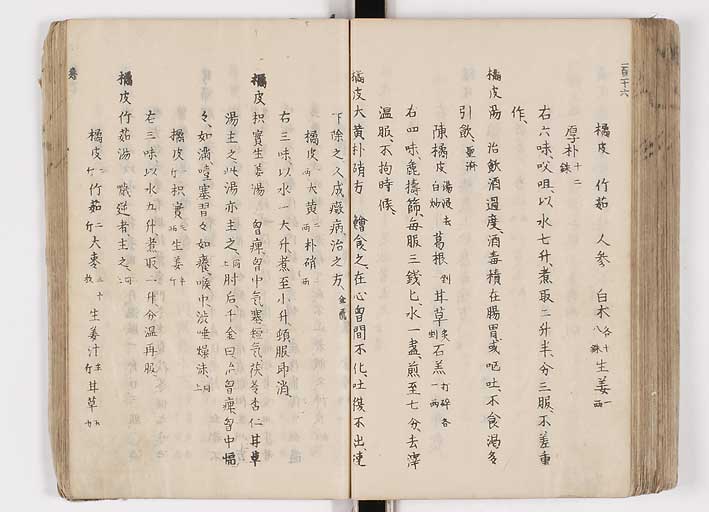 百二十六
橘皮 竹茹 人参 白朮各十八銖 生姜一两
厚朴十二銖
右六味、㕮咀以水七升、煮取二升半、分三服、不差重
作、
橘皮湯 治飲酒過度、酒毒積在腸胃、或呕吐、不食渇多
引飲、聖済
陳橘皮湯浸去白炒 葛根剉 甘草炙剉 石羔打碎各一两
右四味、麁擣篩、每服三銭匕、水一盞、煎至七分、去滓
温服、不拘時候、
橘皮大黄朴硝方 鱠食之、在心胸間不化、吐復不出、速
下除之、久成癥病、治之方、金匱
橘皮一两 大黄二两 朴硝二两
右三味、以水一大升、煮至小升、頓服即消、
橘皮枳實生姜湯 胸痺、胸中気塞短気、茯苓杏仁甘草
湯主之、此湯亦主之、同上 肘后、千金曰、治胸痺、胸中愊
々、如満、噎塞習々如癢、喉中渋唾燥沫、同上
橘皮一斤 枳實三两 生姜半斤
右三味、以水五升、煮取二升、分温再服
橘皮竹茹湯 噦逆者主之、同
橘皮二斤 竹茹二斤 大棗三十枚 生姜汁半斤 甘草五两